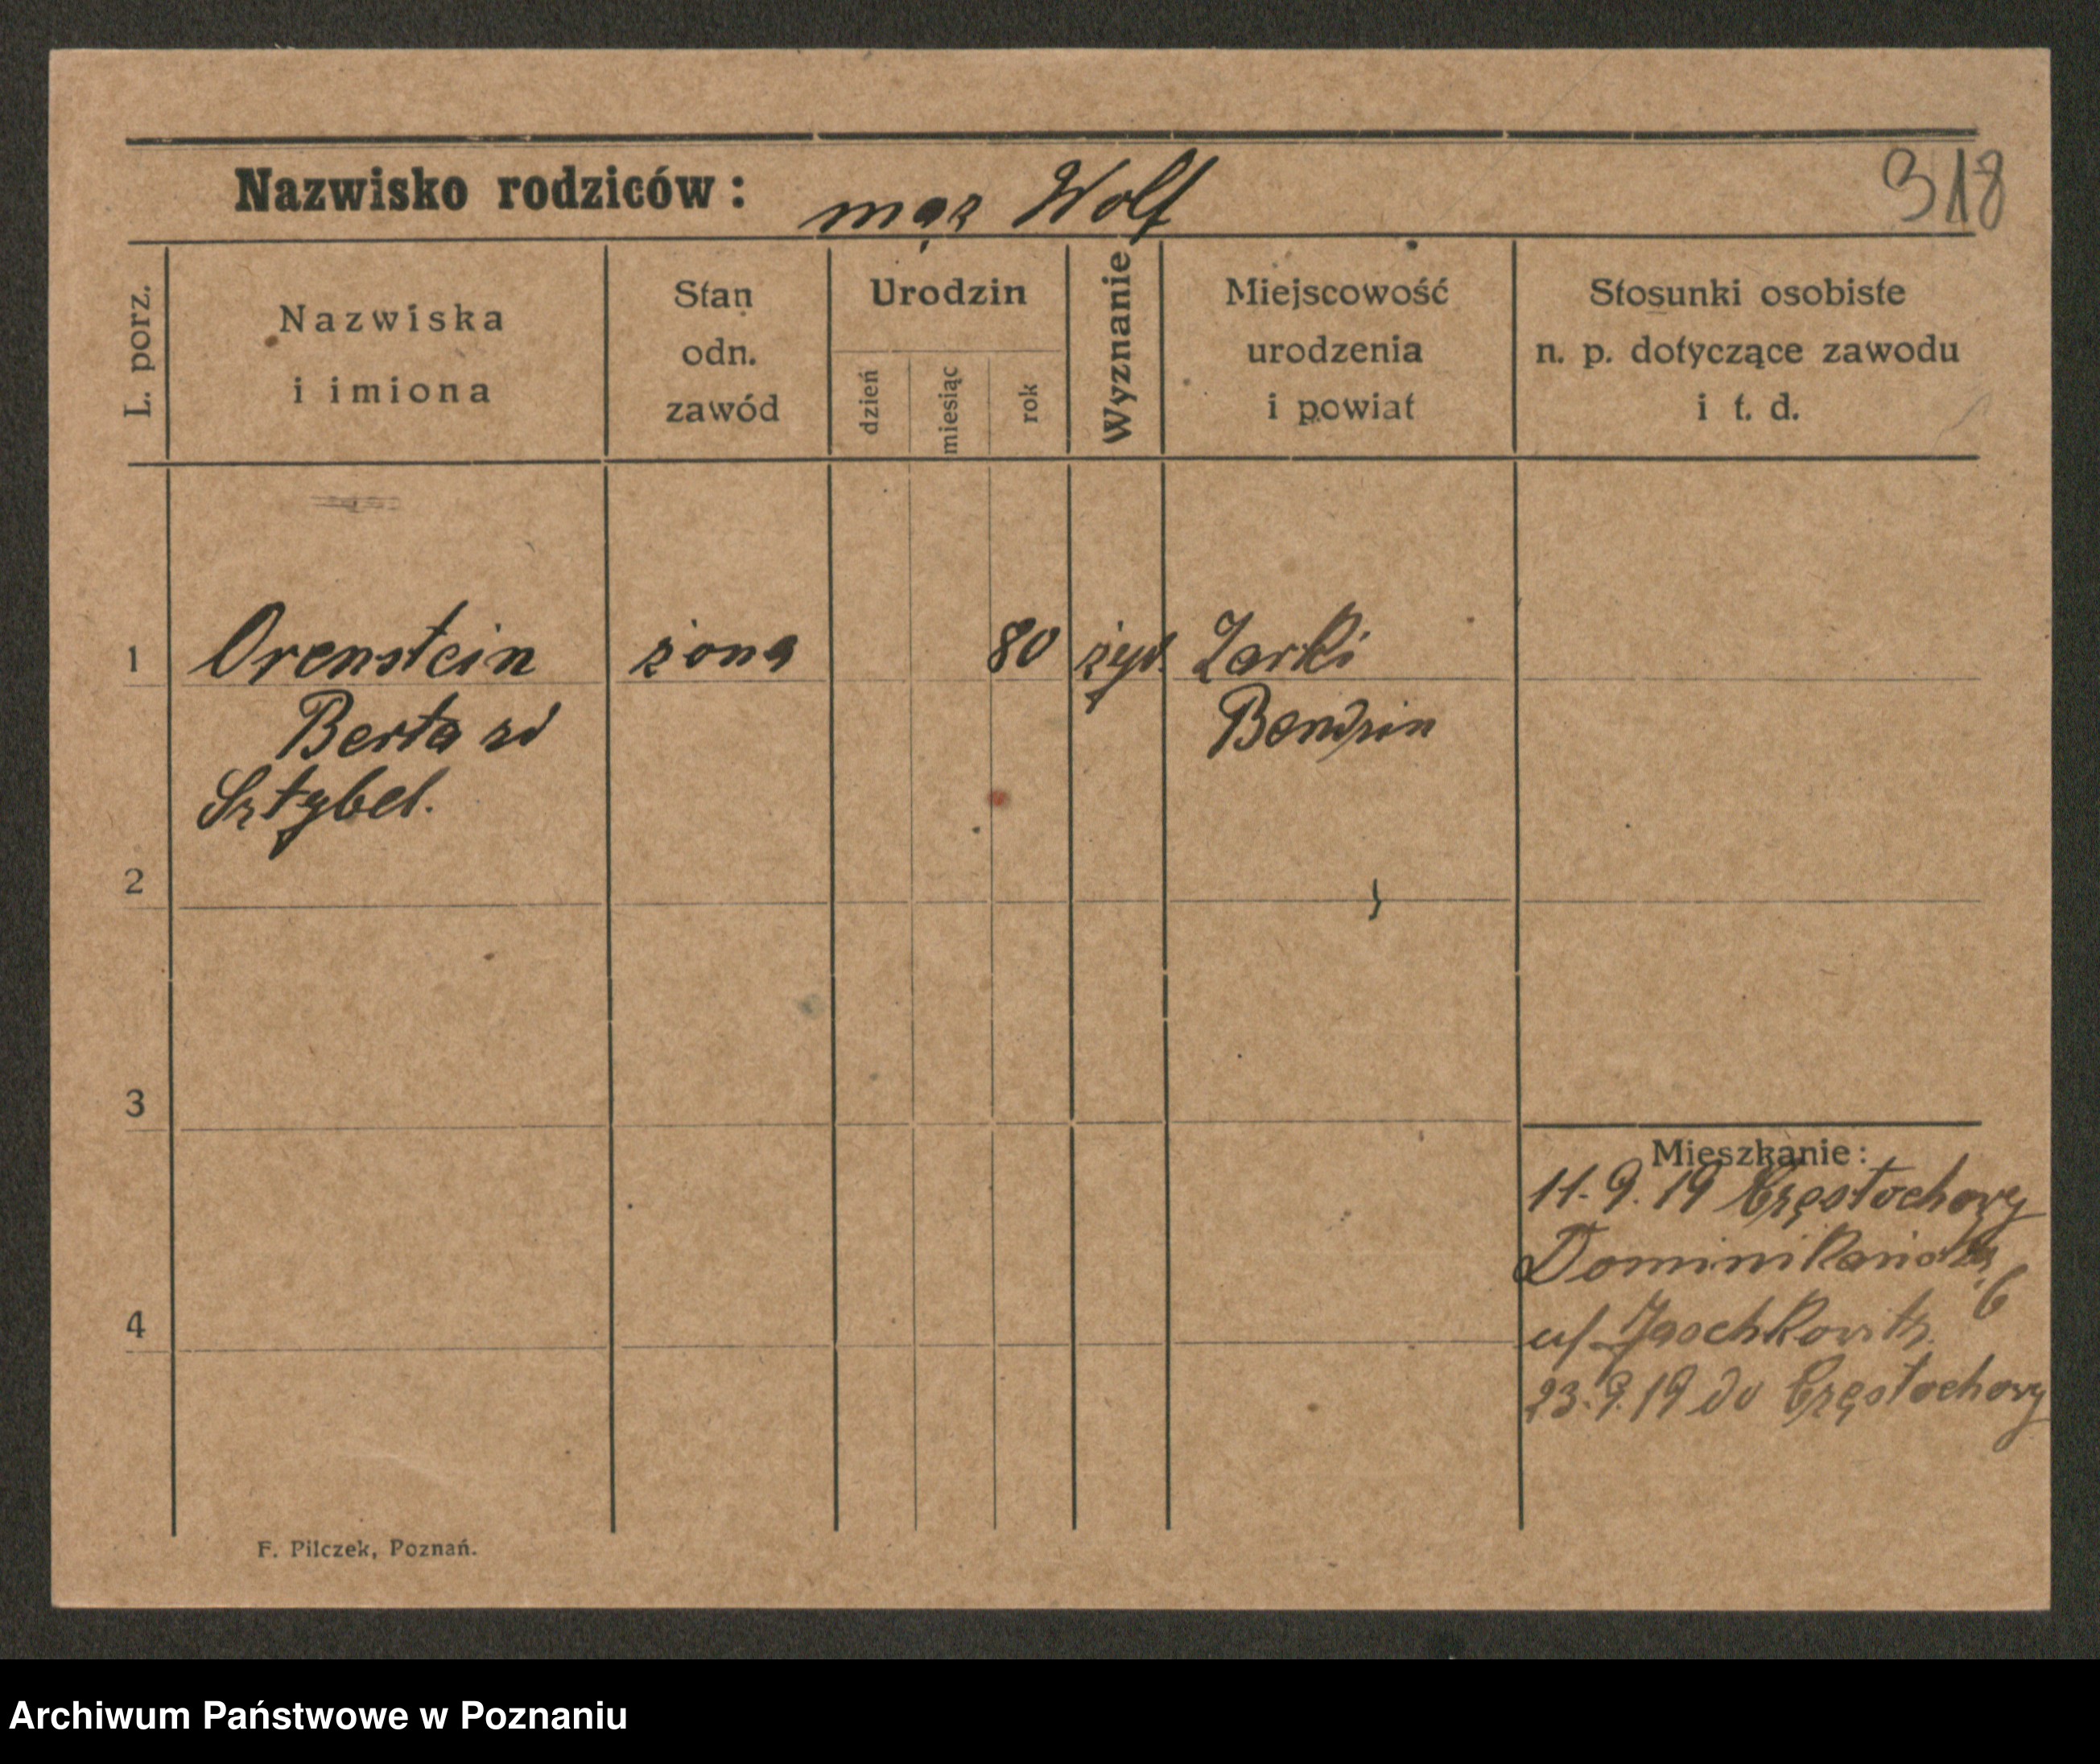 Nazwisko rodziców: mąz Wolf
318
L. porz.
Nazwiska
i imiona
Stan
odn.
zawód
Urodzin
dzień
miesiąc
rok
Wyznanie
Miejscowość
urodzenia
i powiat
Stosunki osobiste
n. p. dotyczące zawodu
i t. d.
1 Orenstein żona 80 żyd. Zarki
Berta zd Bendzin
Sztybel.
2
3
Mieszkanie:
11.9.19 Częstochowy
Dominikańska
6
u/ Jaschkowitz
4
23.9.19 do Częstochowy
F. Pilczek, Poznań.
Archiwum Państwowe w Poznaniu